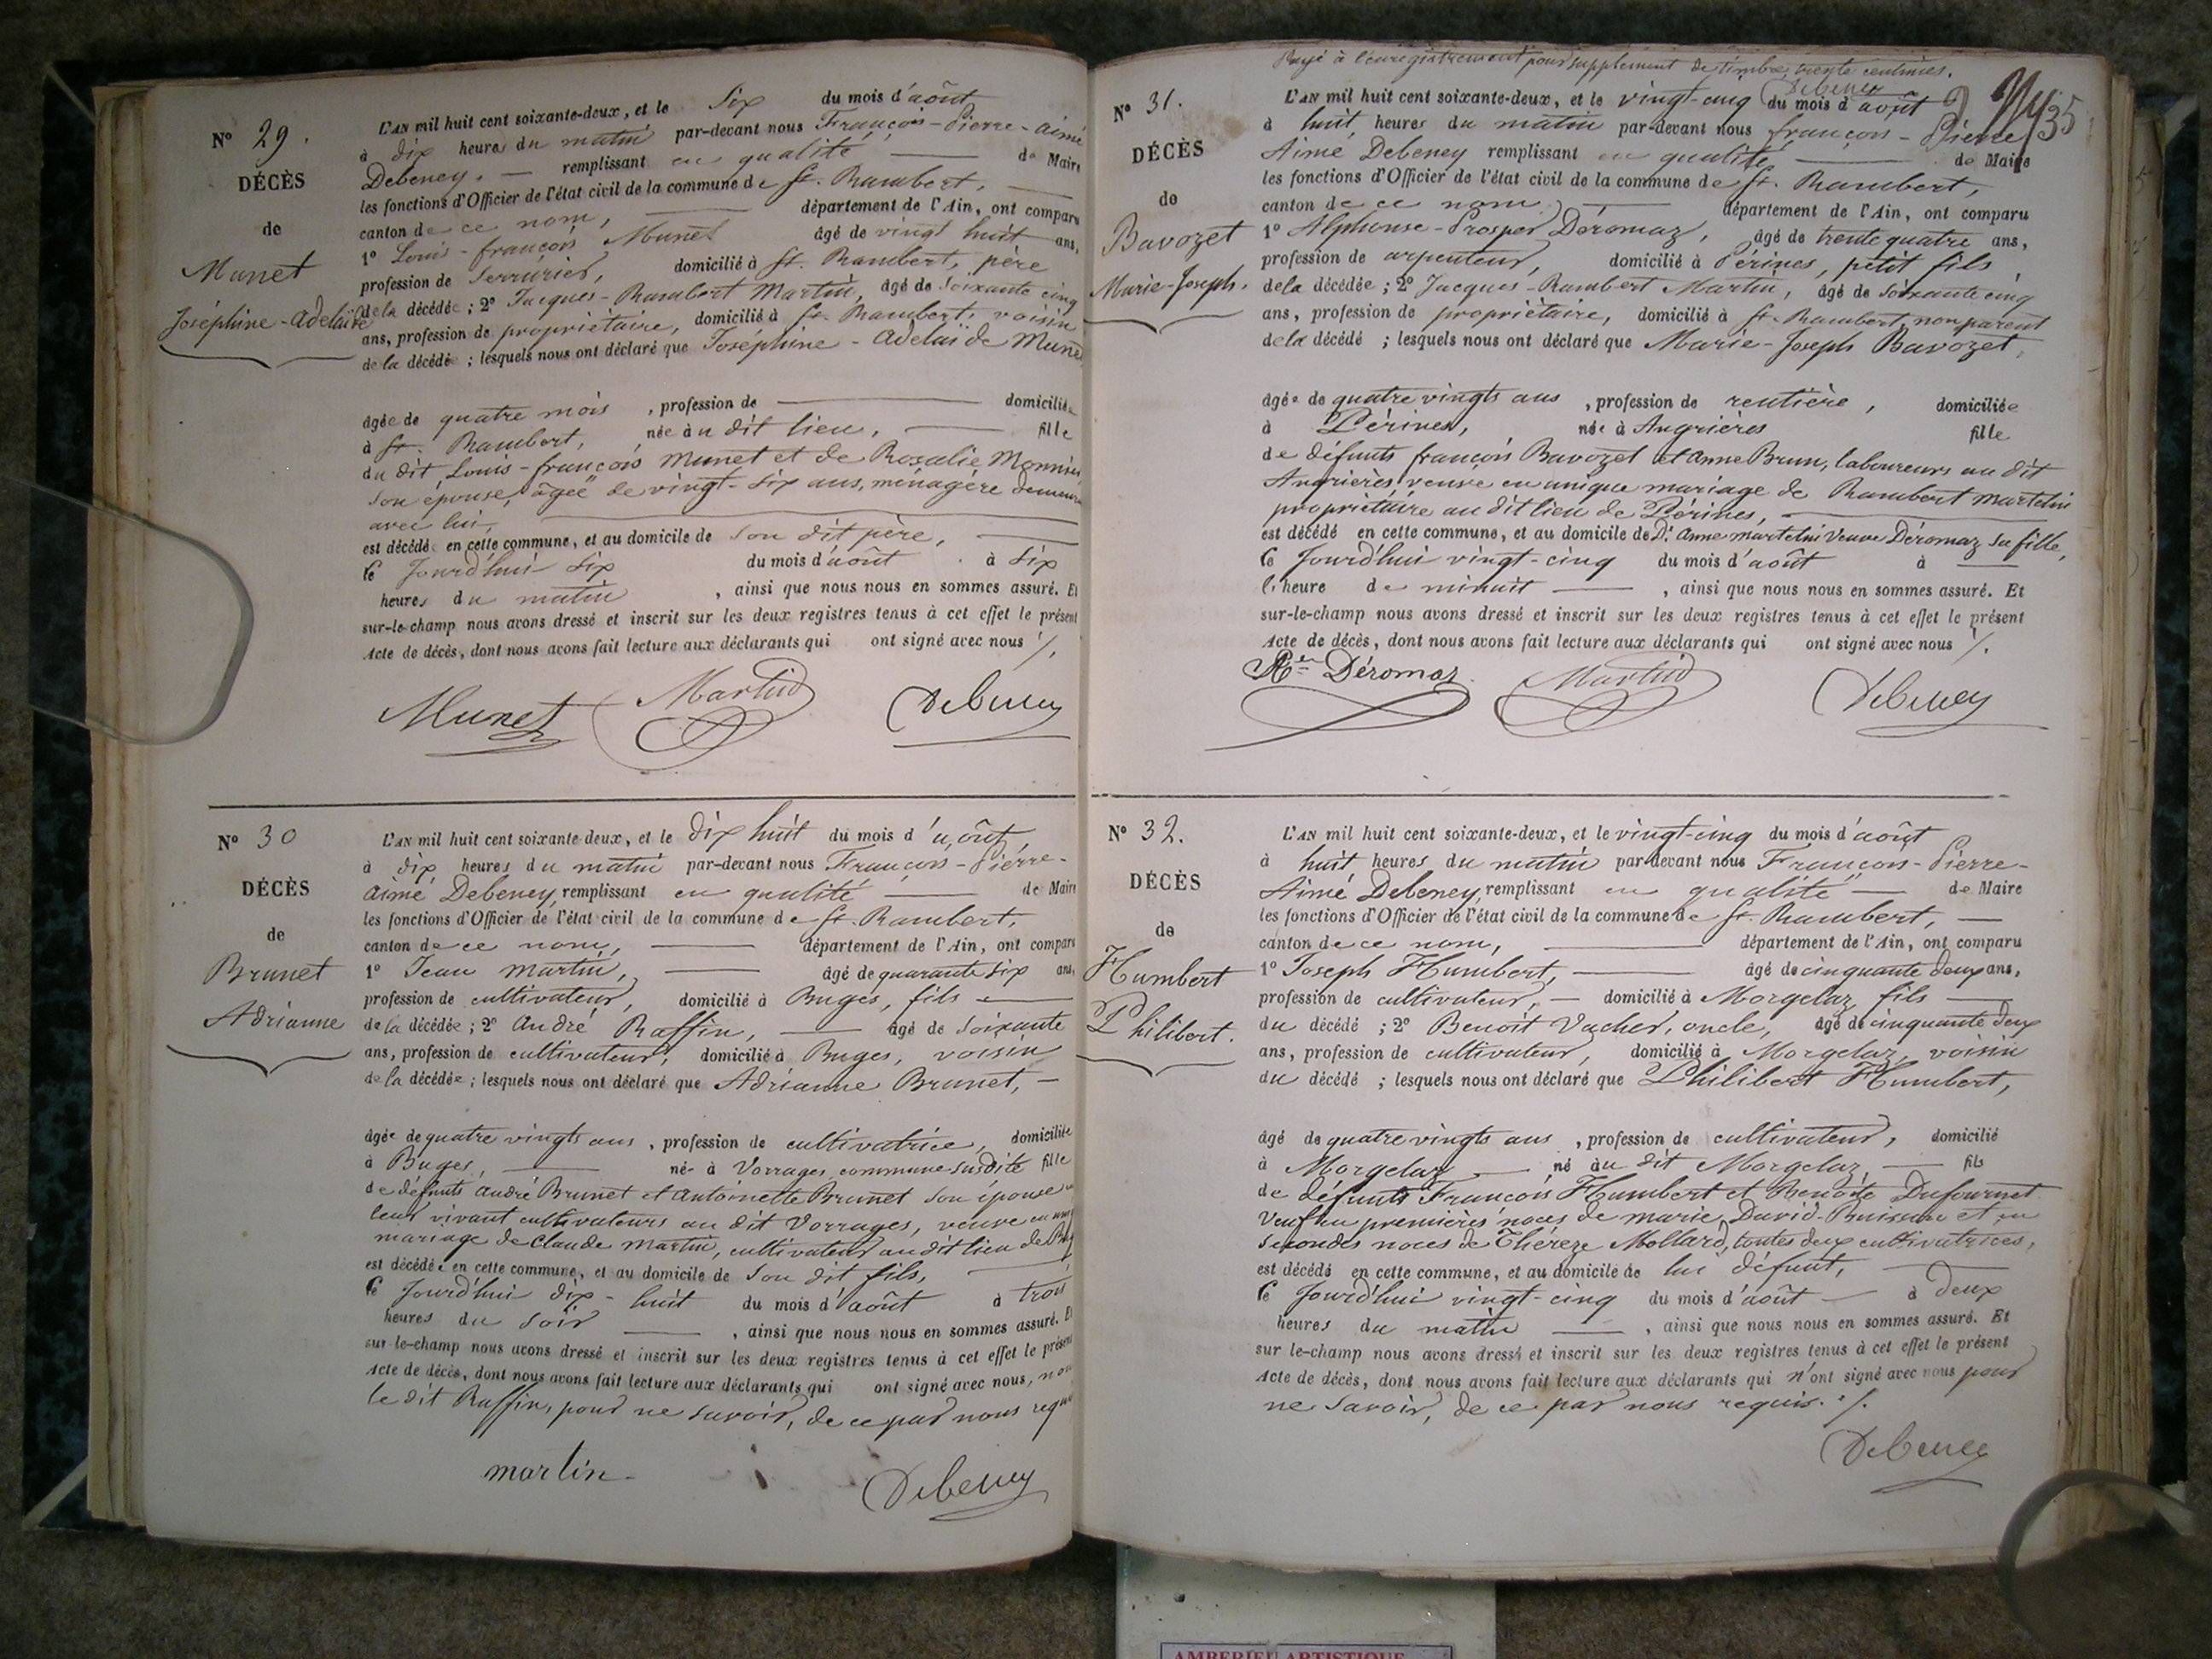 N° 29.
DÉCÈS
de
Munet
Joséphine-Adelaïde
L'AN mil huit cent soixante-deux, et le Six du mois d'août
à dix heures du matin par-devant nous François-Pierre-Aimé
Debeney. — remplissant en qualité — de Maire
les fonctions d'Officier de l'état civil de la commune de St. Rambert,
canton de ce nom, département de l'Ain, ont comparu
1° Louis-françois Munet âgé de vingt huit ans,
profession de Serrurier, domicilié à St. Rambert, père
de la décédée ; 2° Jacques-Rambert Martin, âgé de soixante cinq
ans, profession de propriétaire, domicilié à St. Rambert, voisin
de la décédée ; lesquels nous ont déclaré que Joséphine-Adelaïde Munet
âgée de quatre mois , profession de — domiciliée
à St. Rambert, née au dit lieu, — fille
du dit Louis-françois Munet et de Rosalie Monnier
son épouse, âgée de vingt-six ans, ménagère demeurant
avec lui,
est décédée en cette commune, et au domicile de son dit père,
le Jourd'hui six du mois d'août à six
heures du matin , ainsi que nous nous en sommes assuré. Et
sur-le-champ nous avons dressé et inscrit sur les deux registres tenus à cet effet le présent
Acte de décès, dont nous avons fait lecture aux déclarants qui ont signé avec nous ./.
Munet Martin Debeney
N° 30
DÉCÈS
de
Brunet
Adrianne
L'AN mil huit cent soixante-deux, et le dix huit du mois d'août,
à dix heures du matin par-devant nous François-Pierre-
Aimé Debeney, remplissant en qualité — de Maire
les fonctions d'Officier de l'état civil de la commune de St. Rambert,
canton de ce nom, — département de l'Ain, ont comparu
1° Jean Martin, — âgé de quarante six ans,
profession de cultivateur, domicilié à Buges, fils —
de la décédée ; 2° André Raffin, — âgé de soixante
ans, profession de cultivateur, domicilié à Buges, voisin
de la décédée ; lesquels nous ont déclaré que Adrianne Brunet, —
âgée de quatre vingts ans , profession de cultivatrice, domiciliée
à Buges, — née à Vorrages, commune susdite fille
de défunts André Brunet et Antoinette Brunet son épouse
leur vivant cultivateurs au dit Vorrages, veuve en
mariage de Claude Martin, cultivateur au dit lieu de
est décédée en cette commune, et au domicile de son dit fils,
le Jourd'hui dix-huit du mois d'août à trois
heures du soir — , ainsi que nous nous en sommes assuré. Et
sur le-champ nous avons dressé et inscrit sur les deux registres tenus à cet effet le présent
Acte de décès, dont nous avons fait lecture aux déclarants qui ont signé avec nous, non
le dit Raffin, pour ne savoir, de ce par nous requis
martin Debeney
Payé à l'enregistrement pour supplément de timbre, trente centimes.
Debeney
35
N° 31.
DÉCÈS
de
Bavozet
Marie-Joseph.
L'AN mil huit cent soixante-deux, et le vingt-cinq du mois d'août
à huit heures du matin par-devant nous françois-Pierre
Aimé Debeney remplissant en qualité — de Maire
les fonctions d'Officier de l'état civil de la commune de St. Rambert,
canton de ce nom, — département de l'Ain, ont comparu
1° Alphonse-Prosper Déromaz, âgé de trente quatre ans,
profession de arpenteur, domicilié à Sérines, petit fils
de la décédée ; 2° Jacques-Rambert Martin, âgé de soixante cinq
ans, profession de propriétaire, domicilié à St. Rambert, non parent
de la décédé ; lesquels nous ont déclaré que Marie-Joseph Bavozet,
âgée de quatre vingts ans , profession de rentière, domiciliée
à Sérines, née à Angrières fille
de défunts françois Bavozet et Anne Brun, laboureurs au dit
Angrières, veuve en unique mariage de Rambert Martelin
propriétaire au dit lieu de Sérines,
est décédé en cette commune, et au domicile de De. Anne Martelin Veuve Déromaz sa fille,
le Jourd'hui vingt-cinq du mois d'août à —
l'heure de minuit — , ainsi que nous nous en sommes assuré. Et
sur-le-champ nous avons dressé et inscrit sur les deux registres tenus à cet effet le présent
Acte de décès, dont nous avons fait lecture aux déclarants qui ont signé avec nous ./.
Déromaz Martin Debeney
N° 32.
DÉCÈS
de
Humbert
Philibert.
L'AN mil huit cent soixante-deux, et le vingt-cinq du mois d'août
à huit heures du matin par-devant nous François-Pierre-
Aimé Debeney, remplissant en qualité — de Maire
les fonctions d'Officier de l'état civil de la commune de St. Rambert, —
canton de ce nom, — département de l'Ain, ont comparu
1° Joseph Humbert, — âgé de cinquante deux ans,
profession de cultivateur, — domicilié à Morgelaz, fils —
du décédé ; 2° Benoît Vacher, oncle, âgé de cinquante deux
ans, profession de cultivateur, domicilié à Morgelaz, voisin
du décédé ; lesquels nous ont déclaré que Philibert Humbert,
âgé de quatre vingts ans , profession de cultivateur, domicilié
à Morgelaz — né au dit Morgelaz, — fils
de défunts François Humbert et Benoîte Dufournet
veuf en premières noces de marie David-Buisson et en
secondes noces de Thérèze Mollard, toutes deux cultivatrices,
est décédé en cette commune, et au domicile de lui défunt,
le Jourd'hui vingt-cinq du mois d'août — à deux
heures du matin — , ainsi que nous nous en sommes assuré. Et
sur le-champ nous avons dressé et inscrit sur les deux registres tenus à cet effet le présent
Acte de décès, dont nous avons fait lecture aux déclarants qui n'ont signé avec nous pour
ne savoir, de ce par nous requis. ./.
Debeney
AMBERIEU ARTISTIQUE